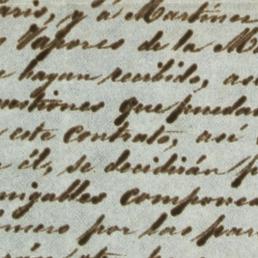 aris, y á Martinez
Vapores de la M
hayan recibido, as
uestiones que puedan
este contrato, así
él, se decidirán p
migables compone
mero por las par